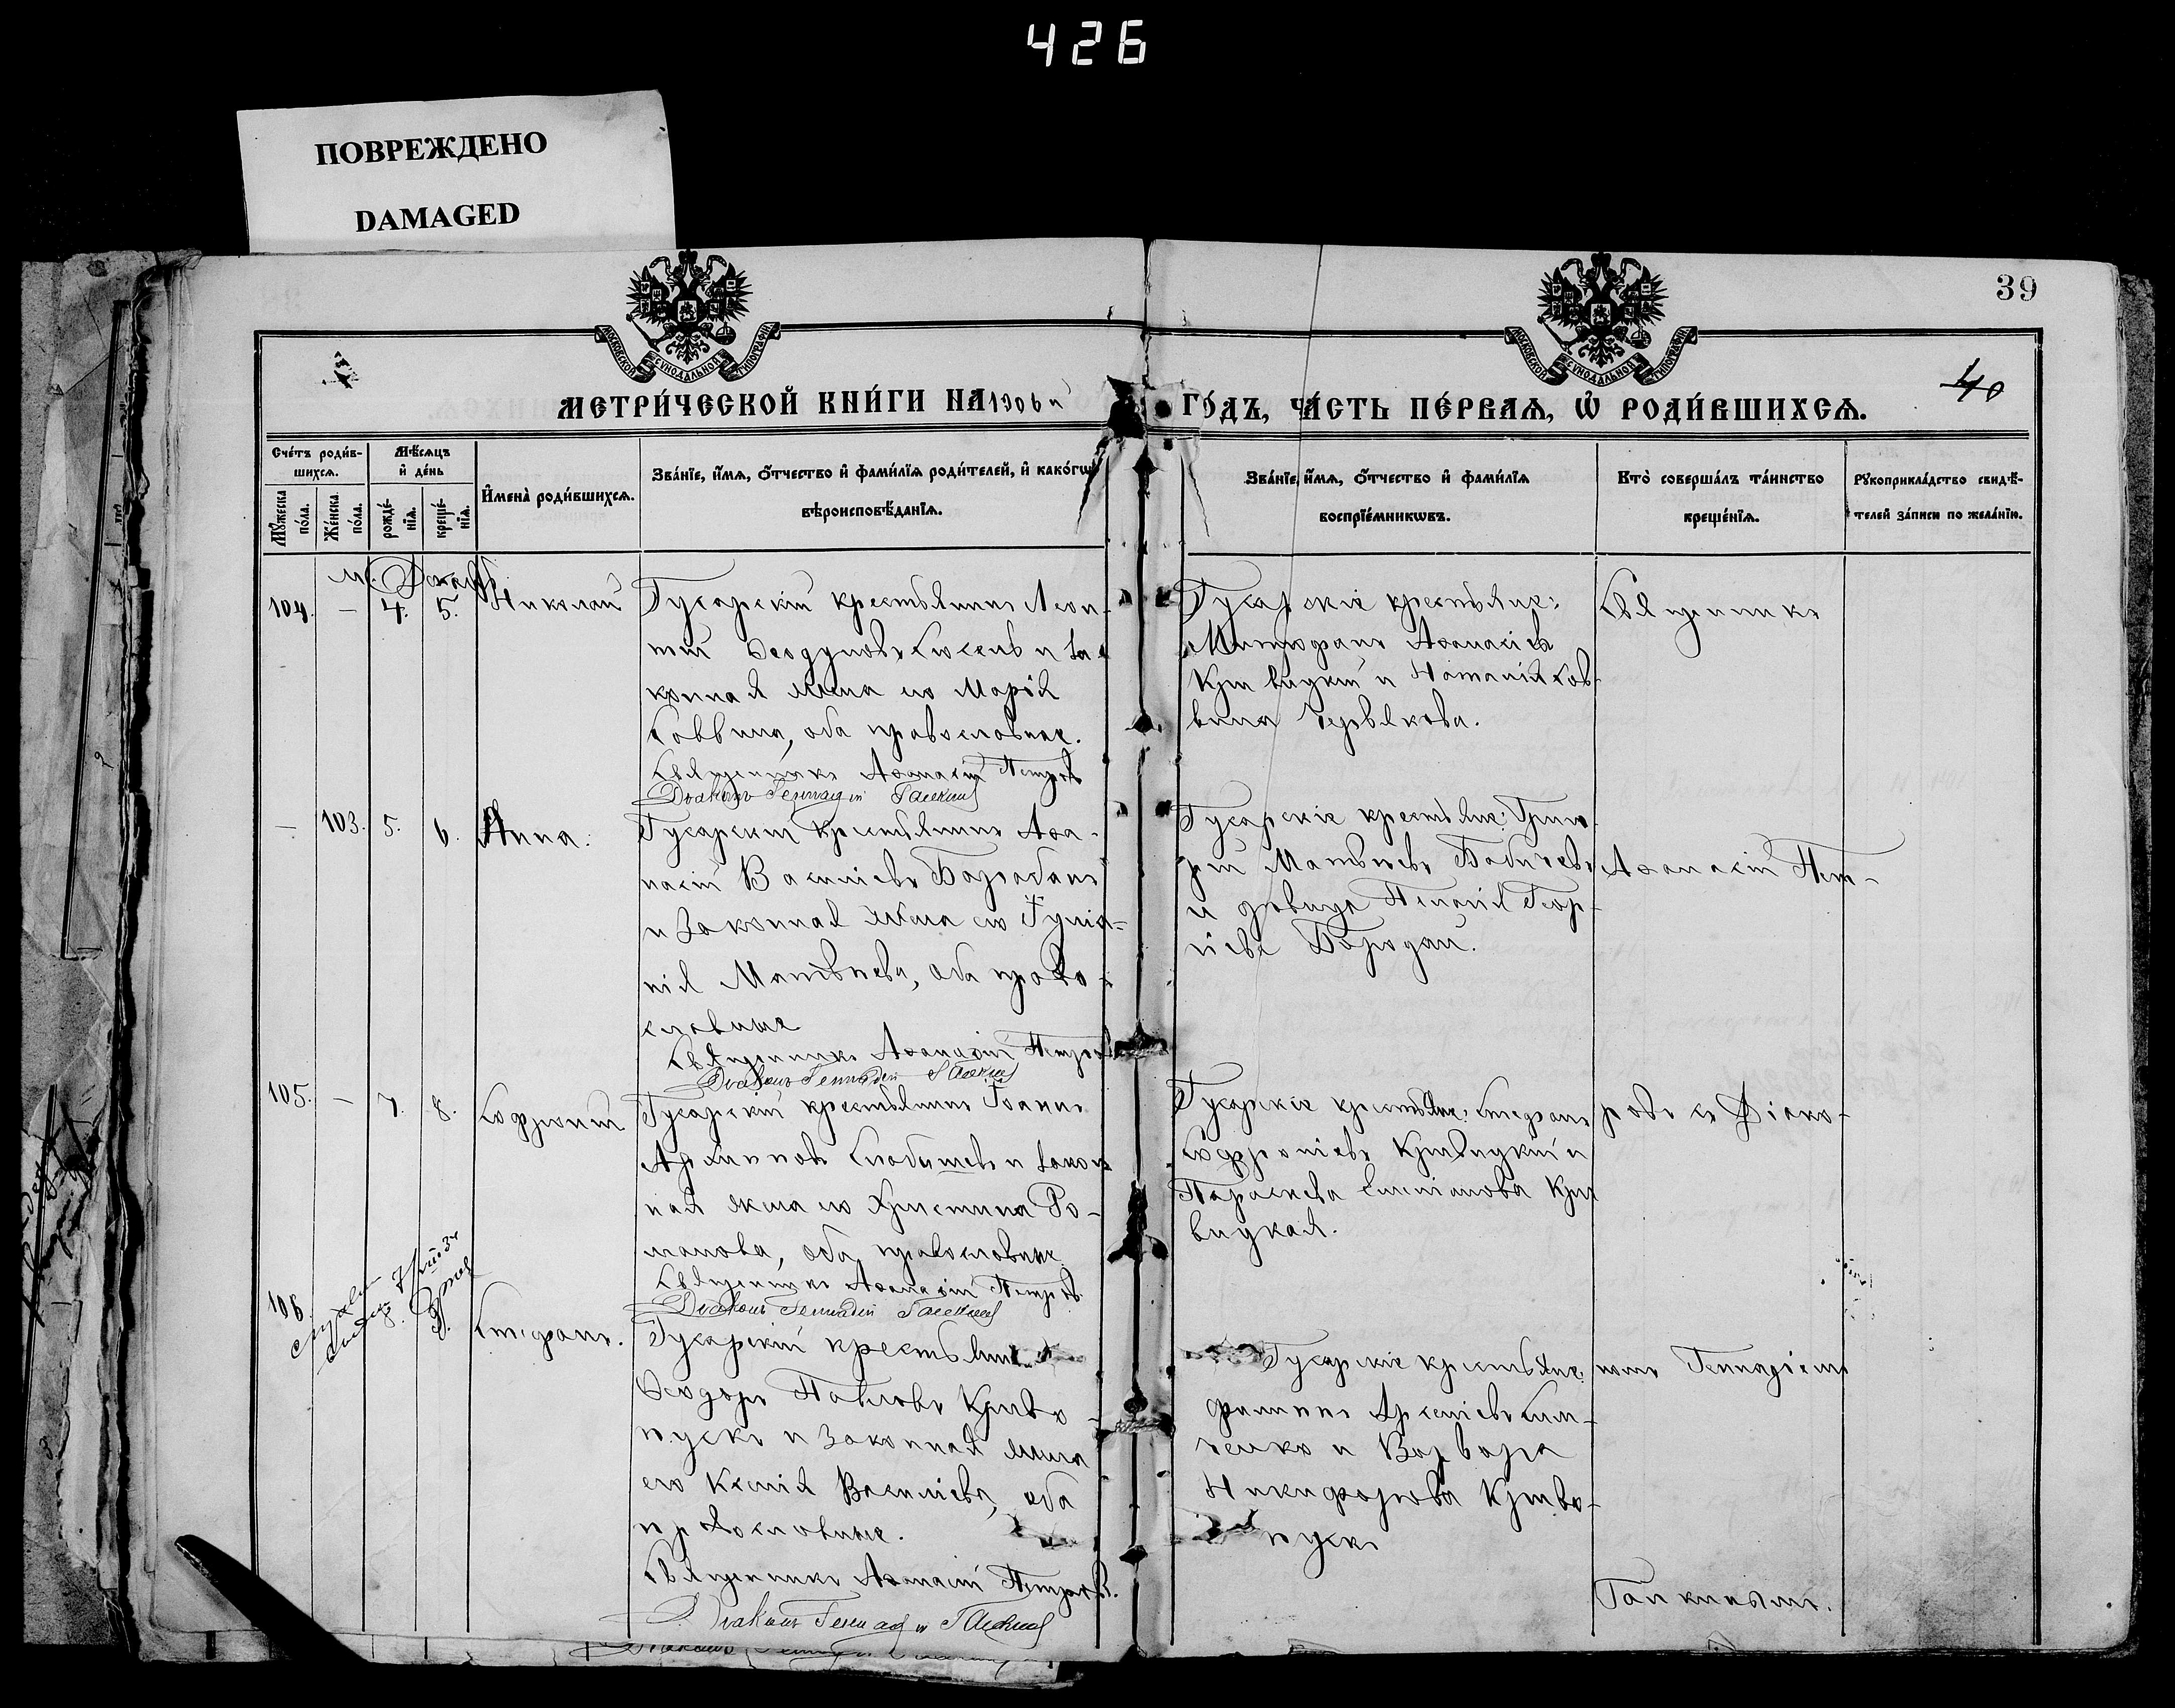 426
ПОВРЕЖДЕНО
DAMAGED
39
МОСКОВСКОЙ СѴНОДАЛЬНОЙ ТИПОГРАФІИ
МОСКОВСКОЙ СѴНОДАЛЬНОЙ ТИПОГРАФІИ
40
МЕТРИ́ЧЕСКОЙ КНИ́ГИ НА 1906 й ГО́ДЪ, ЧА́СТЬ ПЕ́РВАЯ, Ѡ РОДИ́ВШИХСЯ.
Сче́тъ роди́в-
шихся.
Му́жеска по́ла.
Же́нска по́ла.
Мѣ́сяцъ
и де́нь
рожде́-
нїя.
креще́-
нїя.
Имена̀ роди́вшихся.
Зва́нїе, и́мя, о́тчество и фами́лїя роди́телей, и како́гѡ
вѣроисповѣ́данїя.
Зва́нїе, и́мя, о́тчество и фами́лїя
воспрїе́мникѡвъ.
Кто̀ соверша́лъ та́инство
креще́нїя.
Рукоприкла́дство свидѣ́-
телей за́писи по жела́нїю.
м. Декабрь
104. — 4. 5. Николай
Гусарскій крестьянинъ Леон-
тій Ѳеодуловъ и за-
конная жена его Марія
Саввина, оба православные.
Священникъ Аѳанасій Петровъ
Діаконъ Геннадій Галкинъ
Гусарскіе крестьяне:
Митрофанъ Аѳанасіевъ
Кривицкій и Наталія Сав-
вина Червякова.
Священникъ
— 103. 5. 6. Анна.
Гусарскій крестьянинъ Аѳа-
насій Василіевъ Барабанъ
и законная жена его Іуліа-
нія Матвѣева, оба право-
славные
Священникъ Аѳанасій Петровъ
Діаконъ Геннадій Галкинъ
Гусарскіе крестьяне: Григо-
рій Матвѣевъ Бабичевъ
и дѣвица Пелагія Геор-
гіева Бородай.
Аѳанасій Пет-
105. — 7. 8. Софроній
Гусарскій крестьянинъ Іоаннъ
Архиповъ и закон
ная жена его Христина Ро-
манова, оба православные
Священникъ Аѳанасій Петровъ
Діаконъ Геннадій Галкинъ
Гусарскіе крестьяне: Стефанъ
Софроніевъ Кривицкій и
Параскева Кри
вицкая.
ровъ съ Діако-
106. Стефанъ.
Гусарскій крестьянинъ
Ѳеодоръ Павловъ Криво-
пускъ и законная жена
его Ксенія Василіева, оба
православные.
Священникъ Аѳанасій Петровъ.
Діаконъ Геннадій Галкинъ
Гусарскіе крестьяне:
Филиппъ Арсеніевъ
и Варвара
Никифорова Криво-
пускъ
номъ Геннадіемъ
Галкинымъ.